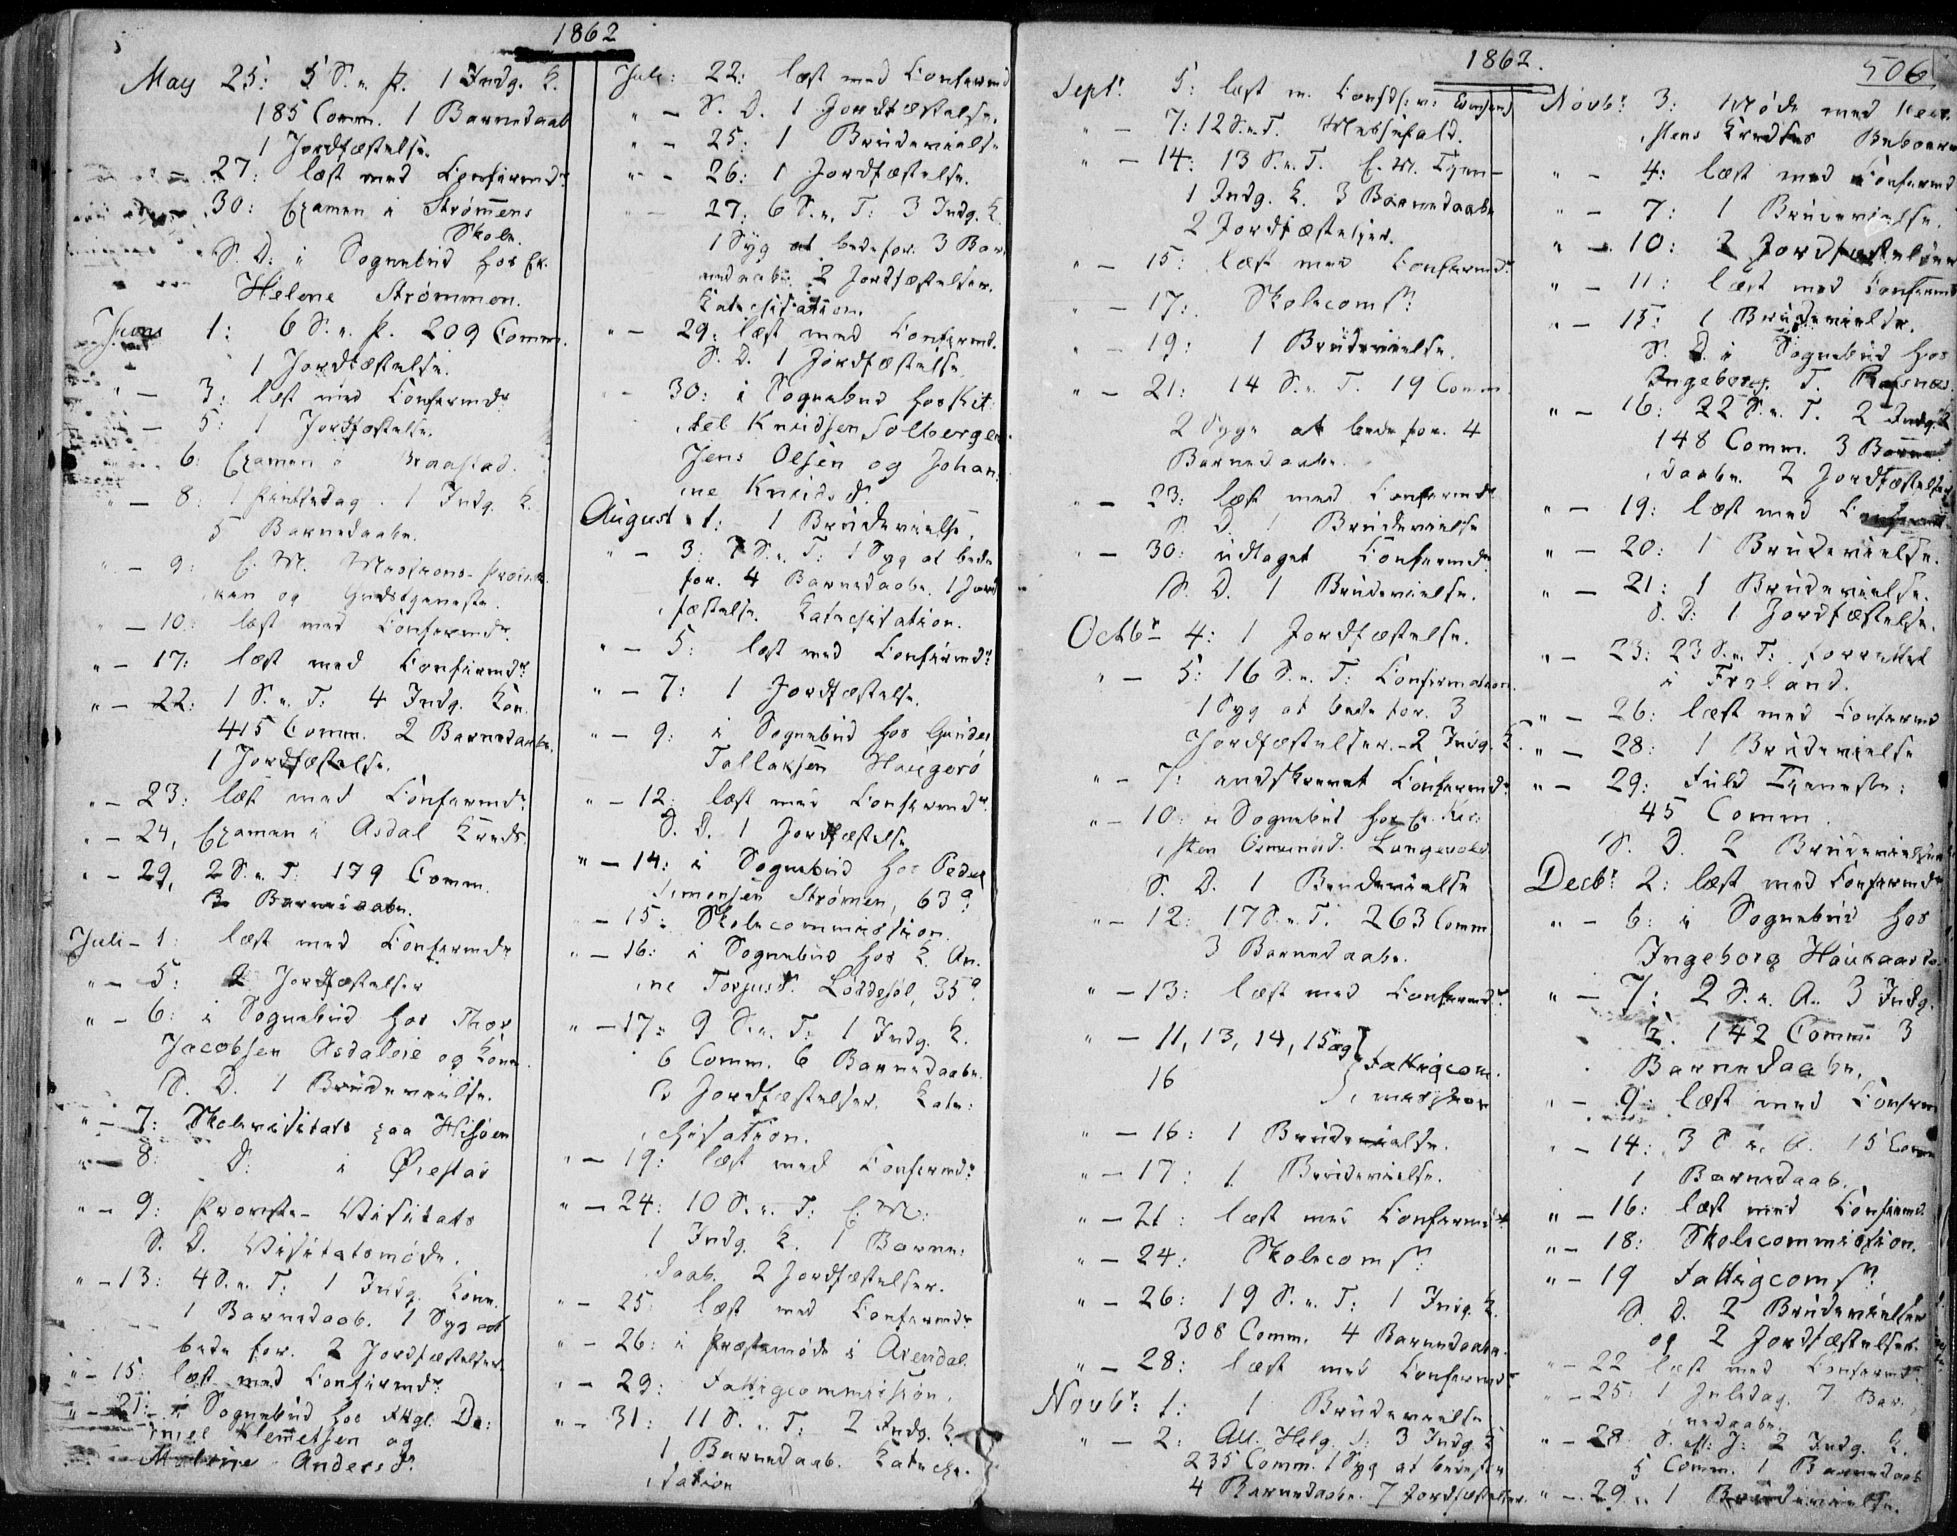 1862
May 25: 5 S. e. P. 1 Indg. K.
185 Comm. 1 Barnedaab
1 Jordfæstelse.
" – 27: læst med Confirmdr
30: Examen i Strømmens
Skole.
S. D. i Sognebud hos
Helene Strømmen.
Juni 1: 6 S. e. P. 209 Comm.
1 Jordfæstelse.
" – 3: læst med Confirmdr
– 5: 1 Jordfæstelse.
6: Examen i Braastad.
– 8: 1 Pintsedag. 1 Indg. K.
5 Barnedaabe.
" – 9: E. M. Missions-
ken og Gudstjeneste.
" – 10: læst med Confirmdr
" – 17: læst med Confirmdr
" – 22: 1 S. e. T: 4 Indg. Kon.
415 Comm. 2 Barnedaabe.
1 Jordfæstelse.
" – 23: læst med Confirmdr
" – 24, Examen i Asdal Kreds.
" – 29, 2 S. e. T. 179 Comm.
3 Barnedaabe.
Juli – 1: læst med Confirmdr
" – 5: 2 Jordfæstelser
" – 6: i Sognebud hos Thor
Jacobsen Asdaleie og Kone.
S. D. 1 Brudevielse.
" – 7: Skolevisitats paa Hisøen
" – 8: D: i Øiestad
" – 9: Provste-Visitats
S. D. Visitatsmøde.
" – 13: 4 S. e. T: 1 Indg. Kone.
1 Barnedaab. 1 Syg at
bede for. 2 Jordfæstelser
" – 15: læst med Confirmdr
" – 21: i Sognebud hos Da:
niel Klemetsen og
Andersd.
Juli: 22: læst med Confirmd
" – S. D. 1 Jordfæstelse.
" – 25: 1 Brudevielse
" – 26: 1 Jordfæstelse.
" – 27: 6 S. e. T: 3 Indg. K.
1 Syg at bede for. 3 Bar
nedaabe. 2 Jordfæstelser.
Katechisation.
" – 29: læst med Confirmd.
S. D. 1 Jordfæstelse.
" – 30: i Sognebud hos Kit
tel Knudsen Solbergen.
Jens Olsen og Johan
ne Knudsd.
August 1: 1 Brudevielse.
" – 3: 7 S. e. T: 1 Syg at bede
for. 4 Barnedaabe. 1 Jord
fæstelse. Katechisation.
" – 5: læst med Confirmdr
" – 7: 1 Jordfæstelse.
" – 9: i Sognebud hos Gunder
Tallaksen Haugerø
" – 12: læst med Confirmdr
S. D. 1 Jordfæstelse
" – 14: i Sognebud hos Peder
Simonsen Strømen, 63 a.
– 15: Skolecommission.
" – 16: i Sognebud hos K. An
ne Torjusd. Løddesøl, 35 a.
" – 17: 9 S. e. T: 1 Indg. K.
6 Comm. 6 Barnedaabe.
3 Jordfæstelser. Kate:
chisation.
" – 19: læst med Confirmdr
" – 24: 10 S. e. T. E. M.
1 Indg. K. 1 Barne:
daab. 2 Jordfæstelser.
" – 25: læst med Confirmdr
" – 26: i Præstemøde i Arendal.
" – 29: Fattigcommission.
" – 31: 11 S. e. T: 2 Indg. K.
1 Barnedaab. Kateche:
sation
1862.
506
Septr 5: læst m.
" – 7: 12 S. e. T. Messefald.
" – 14: 13 S. e. T. E. M. Tjen–
1 Indg. K. 3 Barnedaabe
2 Jordfæstelser.
" – 15: læst med Confirmdr
" – 17: Skolecomsn
" – 19: 1 Brudevielse.
" – 21: 14 S. e. T. 19 Comm
2 Syge at bede for. 4
Barnedaabe.
" – 23: læst med Confirmdr
S. D. 1 Brudevielse
" – 30: udtaget Confirmdr
S. D. 1 Brudevielse.
Octbr – 4: 1 Jordfæstelse.
" – 5: 16 S. e. T: Confirmation.
1 Syg at bede for. 3
Jordfæstelser. – 2 Indg. K.
" – 7: indskrevet Confirmdr
" – 10: i Sognebud hos
sten
S. D. 1 Brudevielse
" – 12: 17 S. e. T. 263 Comm
3 Barnedaabe.
" – 13: læst med Confirmdr
" – 11, 13, 14, 15 og } Fattigcom:
16 } mission
" – 16: 1 Brudevielse.
" – 17: 1 Brudevielse.
" – 21: læst med Confirmdr
" – 24: Skolecomsn
" – 26: 19 S. e. T: 1 Indg. K.
308 Comm. 4 Barnedaabe.
" – 28: læst med Confirmdr
Novbr: 1: 1 Brudevielse
" – 2: All. Helg. D: 3 Indg. K
235 Comm. 1 Syg at bede for
4 Barnedaabe. 7 Jordfæstelser.
Novbr 3: Møde med
stens Kredses Beboere
" – 4: læst med Confirmd
" – 7: 1 Brudevielse.
" – 10: 2 Jordfæstelser
" – 11: læst med Confirmd
" – 15: 1 Brudevielse.
S. D. i Sognebud hos
Ingeborg T. Refsnæs.
" – 16: 22 S. e. T. 2 Indg. K
148 Comm. 3 Barne
daabe. 2 Jordfæstelser
" – 19: læst med
" – 20: 1 Brudevielse.
" – 21: 1 Brudevielse.
S. D: 1 Jordfæstelse.
" – 23: 23 S. e. T: forrettet
i Froland.
" – 26: læst med Confirmd
" – 28: 1 Brudevielse
" – 29: Fuld Tjeneste:
45 Comm
S. D. 2 Brudevielser
Decbr 2: læst med Confirmdr
" – 6: i Sognebud hos
Ingeborg
" – 7: 2 S. e. A. 3 Indg.
K. 142 Comm. 3
Barnedaabe.
" – 9: læst med Confirm
" – 14: 3 S. e. A. 15 Comm
1 Barnedaab.
" – 16: læst med Confirmd
" – 18: Skolecommission.
" – 19 Fattigcomsn
S. D. 2 Brudevielser
og 2 Jordfæstelser.
" – 22 læst med Confirmdr
" – 25: 1 Juledag. 7 Bar:
nedaabe.
" – 28: S. eft: J: 2 Indg. K.
5 Comm. 1 Barnedaab
" – 29. 1 Brudevielse.